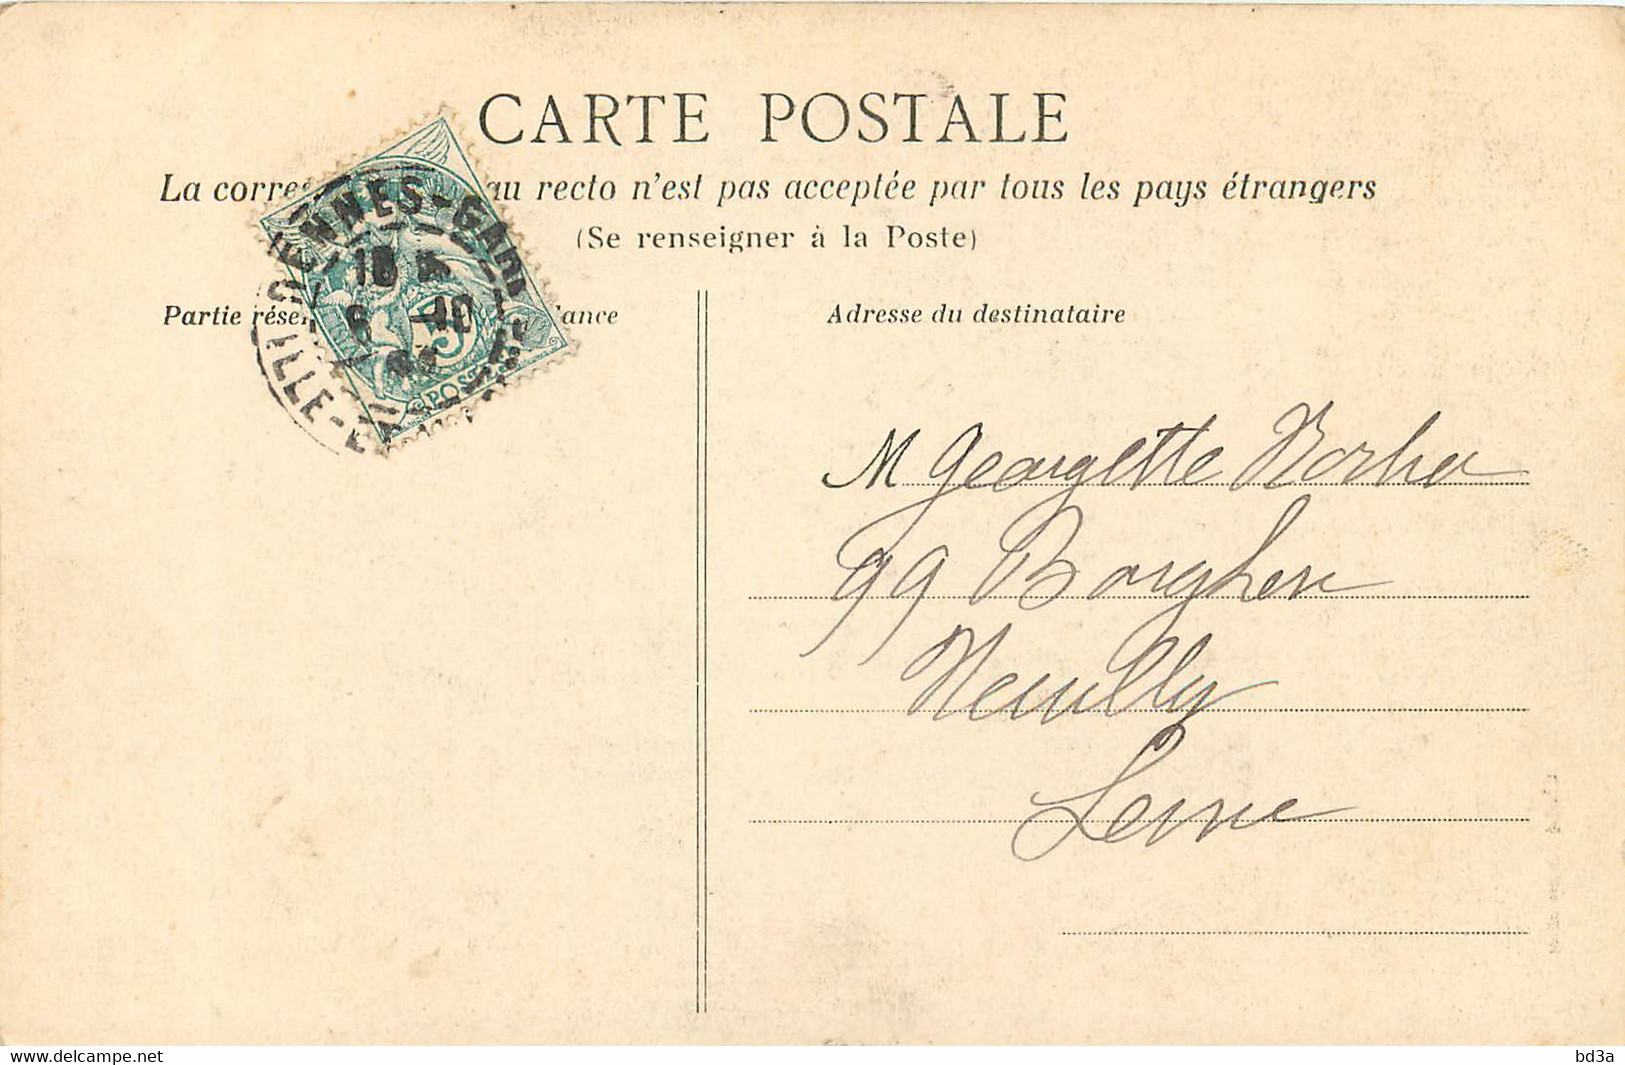 CARTE POSTALE
La corres au recto n'est pas acceptée par tous les pays étrangers
(Se renseigner à la Poste)
RENNES-GARE
18
6 -10
ILLE-
5
POSTES
Partie réser ance
Adresse du destinataire
M Georgette
99 Borghese
Neuilly
Seine
www.delcampe.net
bd3a